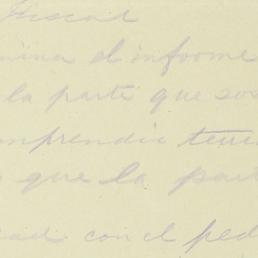 Fiscal
mina el informe
la parte que so
mprendia ten
que la part
con el ped